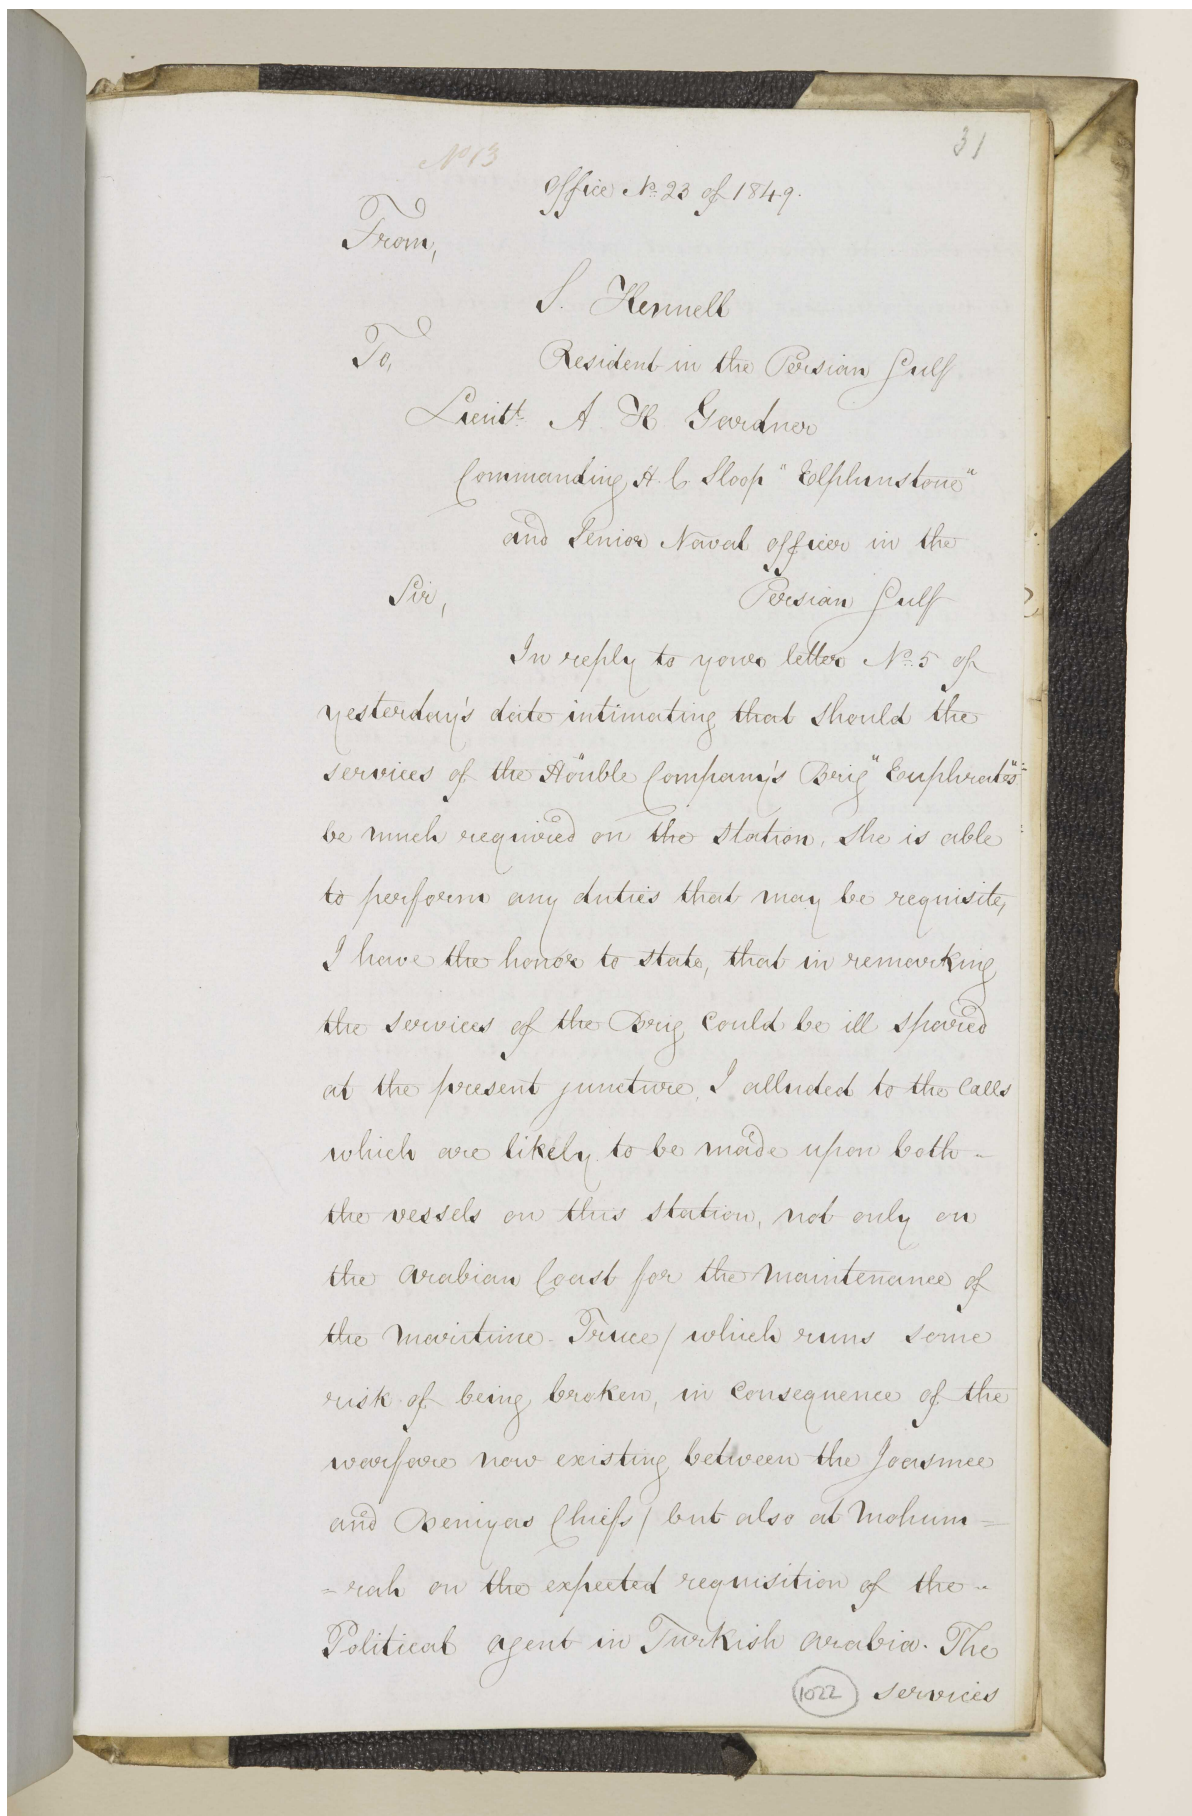 31
No 13
Office No. 23 of 1849.
From,
S. Hennell
To,
Resident in the Persian Gulf
Lieutt. A H Gardner
Commanding H. C. Sloop "Elphinstone"
and Senior Naval officer in the
Sir,
Persian Gulf
In reply to your letter No. 5 of
yesterday's date intimating that should the
services of the Honble Company's Brig "Euphrates"
be much required on the station, she is able
to perform any duties that may be requisite,
I have the honor to state, that in remarking
the services of the Brig could be ill spared
at the present juncture, I alluded to the calls
which are likely to be made upon both -
the vessels on this station, not only on
the Arabian Coast for the maintenance of
the Maritime Truce / which runs some
risk of being broken, in consequence of the
warfare now existing between the Joasmee
and Beniyas Chiefs / but also at Mohum=
=rah on the expected requisition of the -
Political agent in Turkish Arabia. The
services
1022